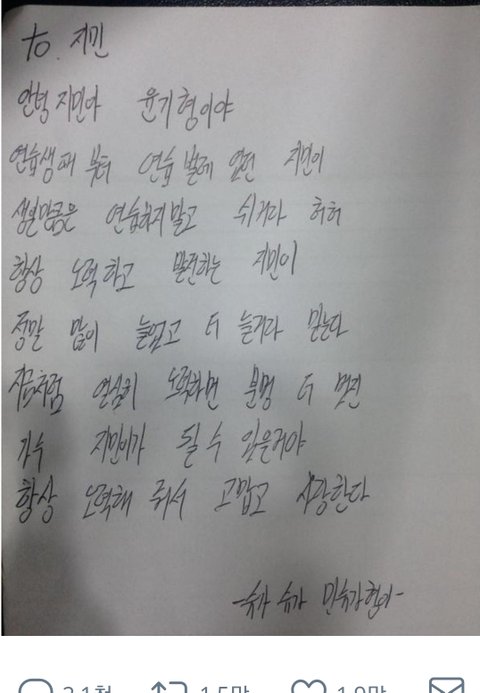 to. 지민
안녕 지민아 윤기형이야
연습생때 부터 연습 벌레 였던 지민이
생일만큼은 연습하지말고 쉬거라 허허
항상 노력하고 발전하는 지민이
정말 많이 늘었고 더 늘거라 믿는다
지금처럼 열심히 노력하면 분명 더 멋진
가수 지민이가 될 수 있을거야
항상 노력해 줘서 고맙고 사랑한다
-슈가 슈가 민슈가형이-